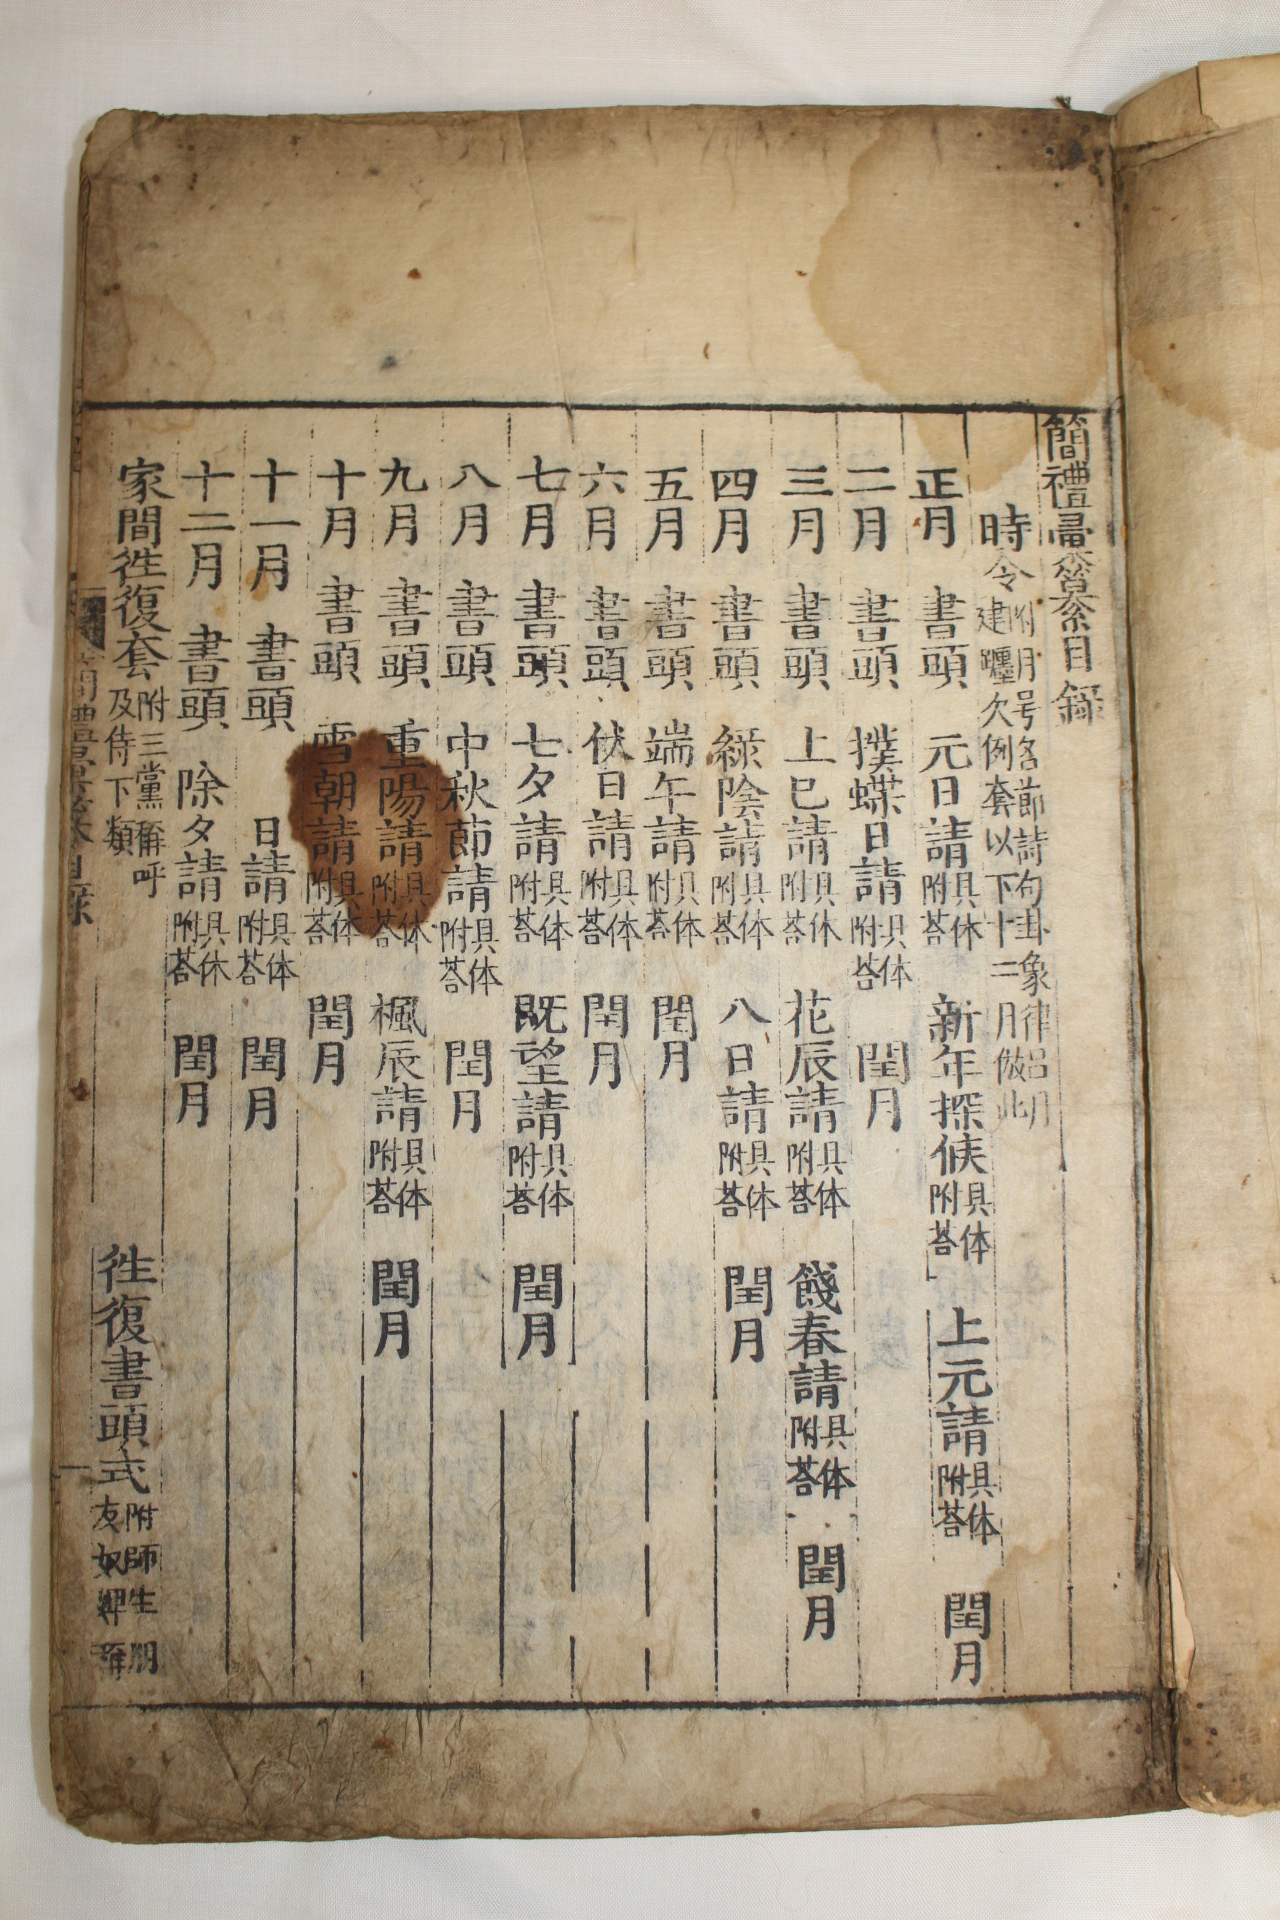 簡禮彙纂目錄
時令 附月号名節詩句卦象律呂月建躔欠例套以下十二月倣此
正月 書頭 元日請 具体附荅 新年探候 具体附荅 上元請 具体附荅 閏月
二月 書頭 撲蝶日請 具体附荅 閏月
三月 書頭 上巳請 具体附荅 花辰請 具体附荅 餞春請 具体附荅 閏月
四月 書頭 綠陰請 具体附荅 八日請 具体附荅 閏月
五月 書頭 端午請 具体附荅 閏月
六月 書頭 伏日請 具体附荅 閏月
七月 書頭 七夕請 具体附荅 既望請 具体附荅 閏月
八月 書頭 中秋節請 具体附荅 閏月
九月 書頭 重陽請 具体附荅 楓辰請 具体附荅 閏月
十月 書頭 雪朝請 具体附荅 閏月
十一月 書頭 日請 具体附荅 閏月
十二月 書頭 除夕請 具体附荅 閏月
家間徃復套 附三黨稱呼及侍下類 徃復書頭式 附師生朋友奴婢